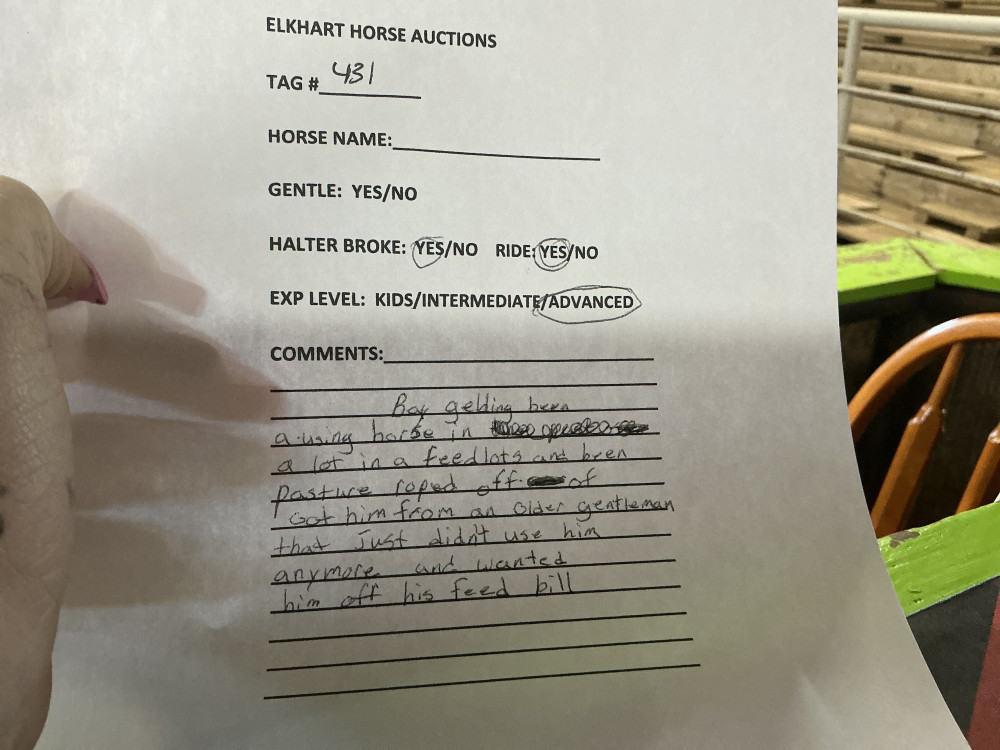 ELKHART HORSE AUCTIONS
TAG # 431
HORSE NAME:
GENTLE: YES/NO
HALTER BROKE: YES/NO RIDE: YES/NO
EXP LEVEL: KIDS/INTERMEDIATE/ADVANCED
COMMENTS:
Bay gelding been
a using horse in
a lot in a feedlots and been
pasture roped off of
Got him from an older gentleman
that just didn't use him
anymore and wanted
him off his feed bill